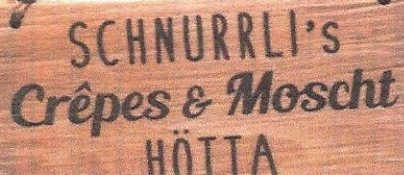 SCHNURRLI's
Crêpes & Moscht
HÖTTA